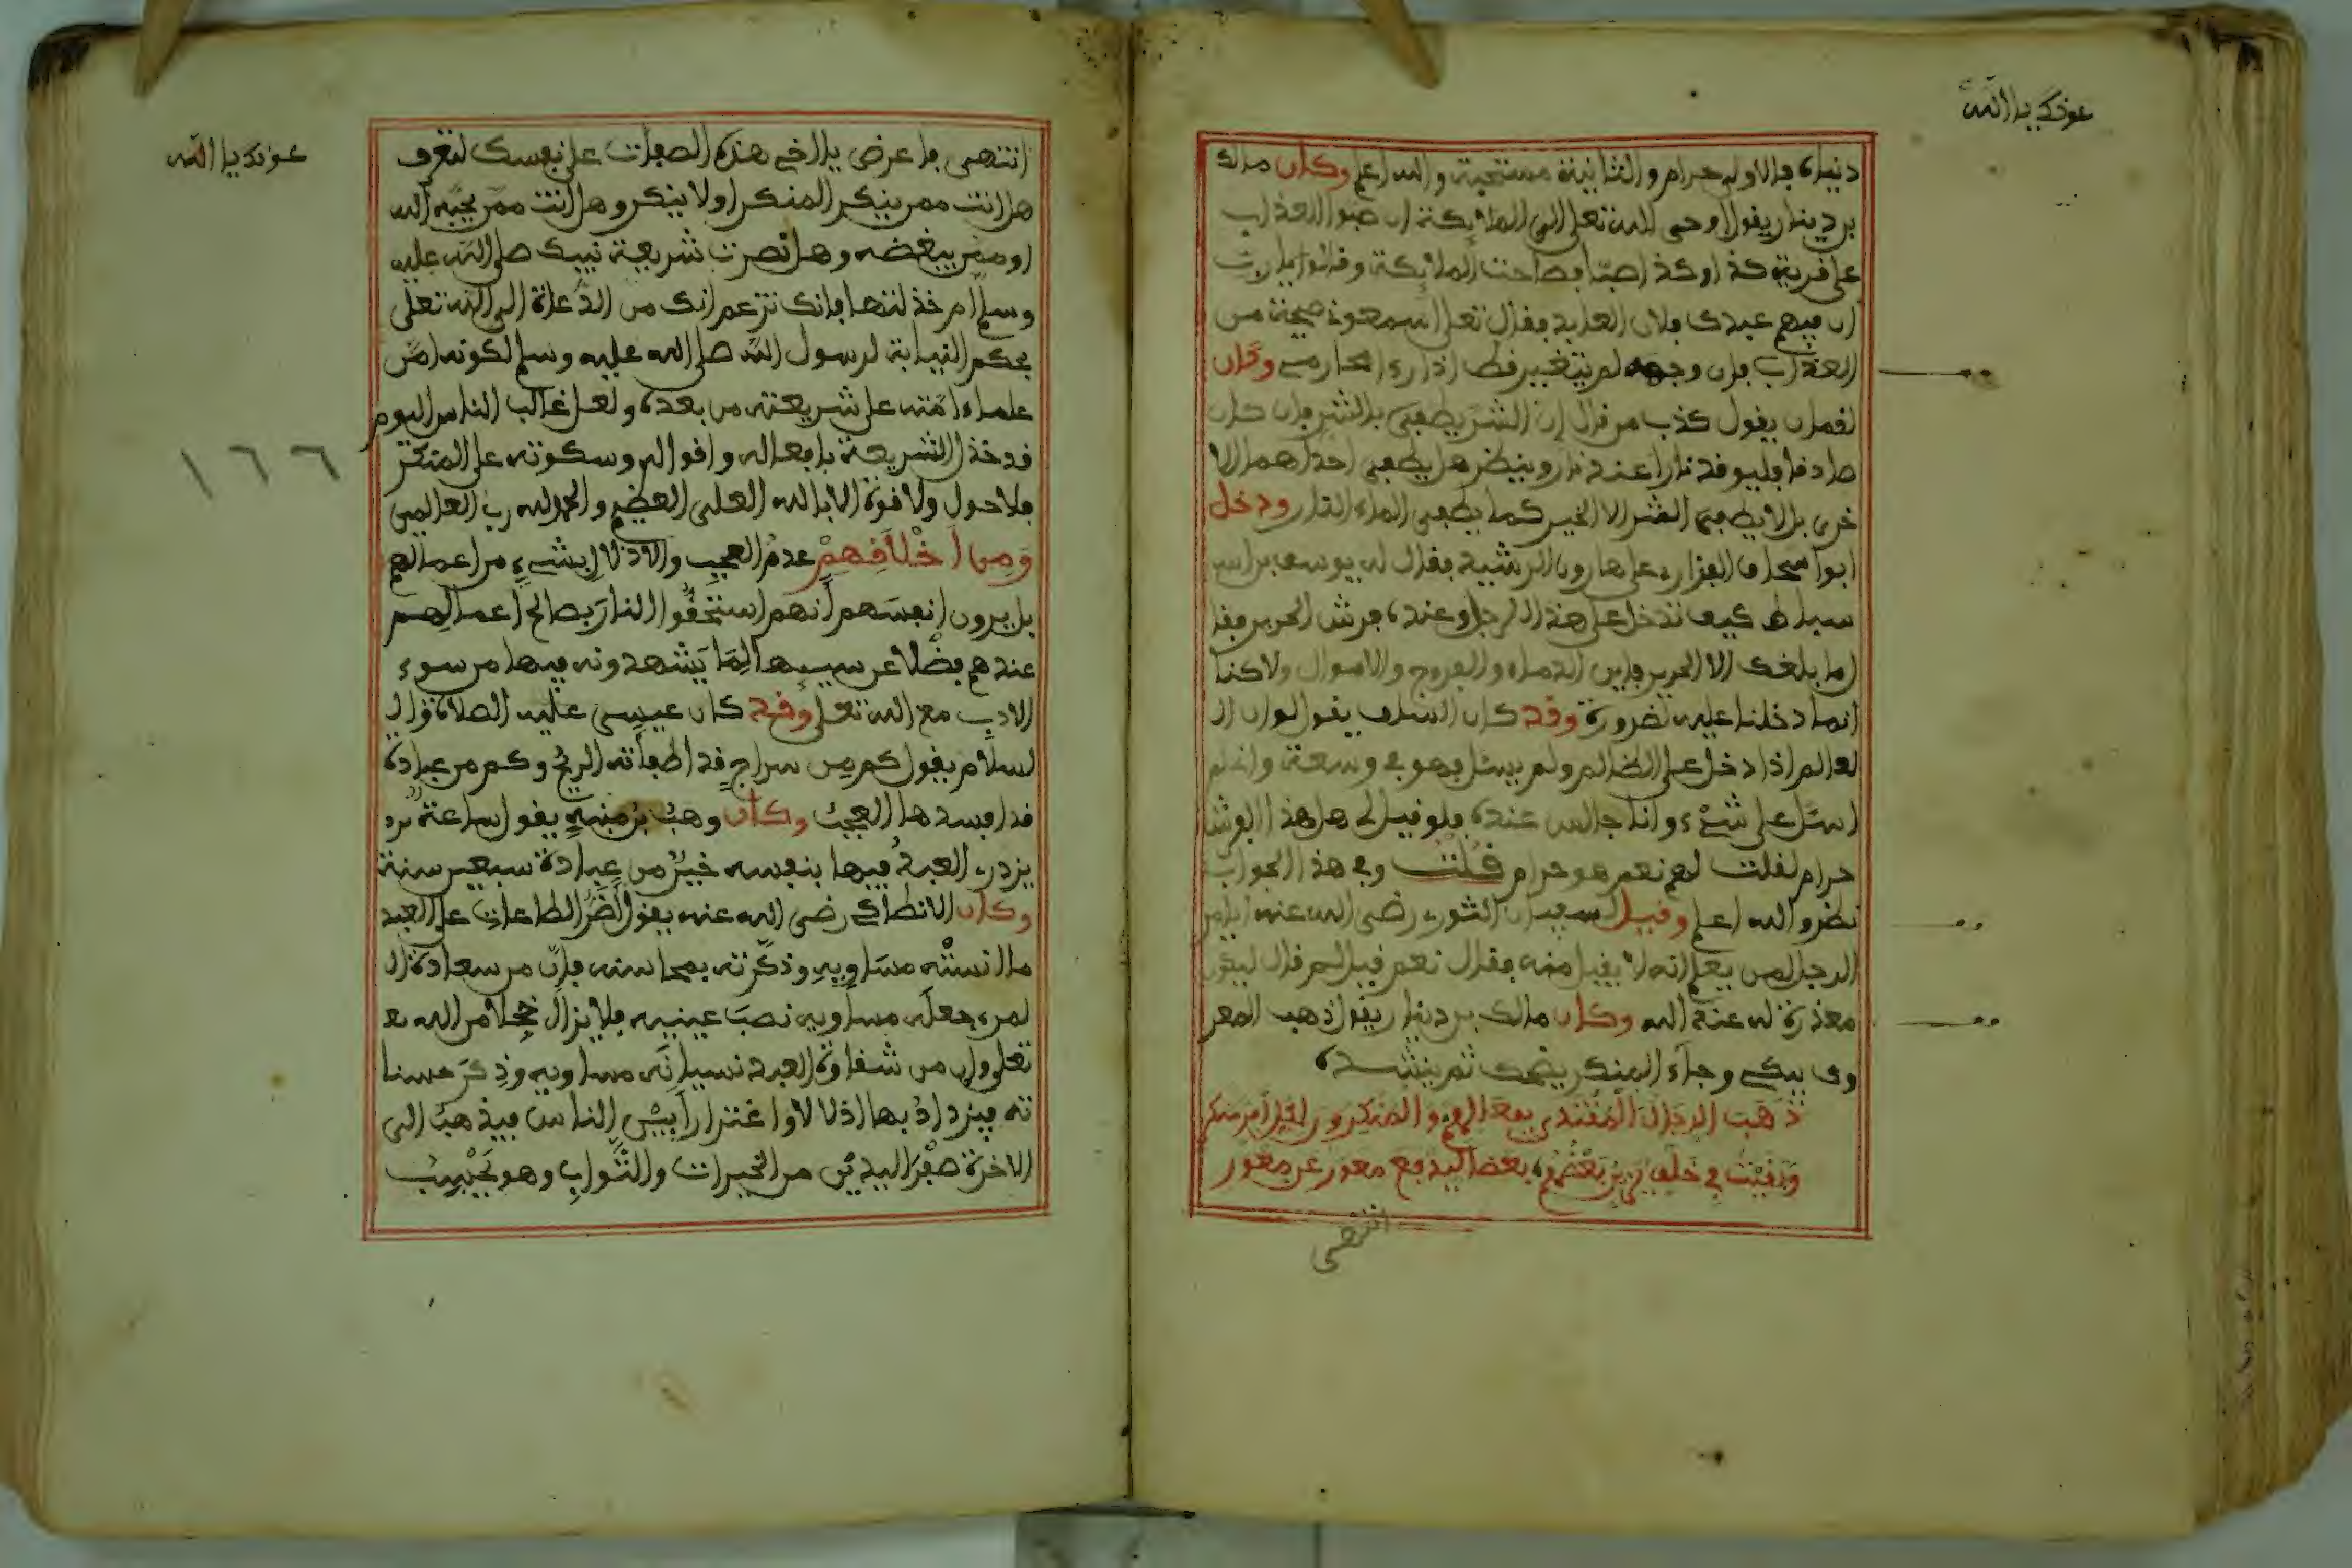 عونك يا الله
دنياه فالاولى حرام والثانية مستحبة والله اعلم وكان مالك
بن دينار يقول اوحى الله تعلى الى الملائكة ان صبوا العذاب
على قرية كذا وكذا صبا فصاحت الملائكة وقالوا يا رب
ان فيهم عبدك فلان العابد فقال تعلى اسمعونى ضجته من
العذاب فإن وجهه لم يتغير قط اذا رءا محارمى وكان
لقمان يقول كذب من قال إن الشر يطفى بالشر فإن كان
صادقا فليوقد نارا عند نار وينظر هل يطفى احداهما الا
خرى بل لا يطفى الشر الا الخير كما يطفى الماء النار ودخل
ابوا سحاق الفزارى على هارون الرشيد فقال له يوسف بن اس
سباط كيف تدخل على هذا الرجل وعنده فرش الحرير فقا
اما بلغك الا الحرير فاين الدماء والفروج والاموال ولاكنا
انما دخلنا عليه لضرورة وقد كان السلف يقولون ان ال
لعالم اذا دخل على الظالم ولم يسئل فهو فى وسعة وانا لم
اسئل على شىء وانا جالس عنده فلو قيل لى هل هذا الفرش
حرام لقلت لهم نعم هو حرام قلت وفى هذا الجواب
نظر والله اعلم وقيل لسفيان الثورى رضى الله عنه ايامر
الرجل لمن يعلم انه لا يقبل منه فقال نعم قيل لم قال ليكون
معذرة له عند الله وكان مالك بن دينار يقول ذهب المعر
وف يبكى وجاء المنكر يضحك ثم ينشد
ذهب الرجال المقتدى بفعالهم والمنكرون لكل امر منكر
وبقيت فى خلف يزين بعضهم بعضا ليدفع معور عن معور
انتهى
عونك يا الله
انتهى فاعرض يا اخى هذه الصفات على نفسك لتعرف
هل انت ممن ينكر المنكر او لا ينكر وهل انت ممن يحبه الله
او ممن يبغضه وهل نصرت شريعة نبيك صلى الله عليه
وسلم ام خذلتها فإنك تزعم انك من الدعاة الى الله تعلى
بحكم النيابة لرسول الله صلى الله عليه وسلم لكونه امن
علماء امته على شريعته من بعده ولعل غالب الناس اليوم
قد خذل الشريعة بافعاله واقواله وسكوته على المنكر
فلا حول ولا قوة الا بالله العلى العظيم والحمد لله رب العالمين
ومن اخلاقهم عدم العجب والادلال بشىء من اعمالهم
بل يرون انفسهم انهم استحقوا النار بصالح اعمالهم
عندهم فضلا عن سييها لما يشهدونه فيها من سوء
الادب مع الله تعلى وقد كان عيسى عليه الصلاة وال
لسلام يقول كم من سراج قد اطفأته الريح وكم من عبادة
قد افسدها العجب وكان وهب بن منبه يقول ساعة يزد
يزدرى العبد فيها بنفسه خير من عبادة سبعين سنة
وكان الانطاكى رضى الله عنه يقول اضر الطاعات على العبد
ما انسته مساويه وذكرته بمحاسنه فإن من سعادة ال
لمرء جعله مساويه نصب عينيه فلا يزال خجلا من الله تع
تعلى وإن من شقاوة العبد نسيانه مساويه وذكر حسنا
ته فيزداد بها اذلالا واغترارا بين الناس فيذهب الى
الاخرة صفر اليدين من الخيرات والثواب وهو يحسب
١٦٦